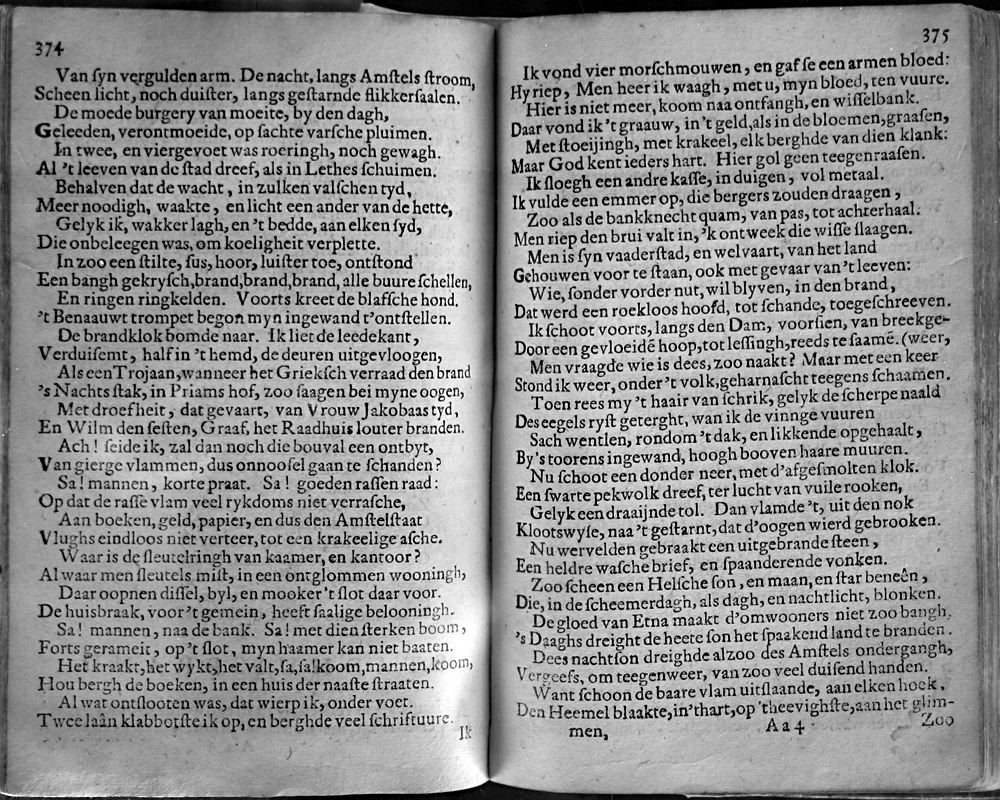 374
Van ſyn vergulden arm. De nacht, langs Amſtels ſtroom,
Scheen licht, noch duiſter, langs geſtarnde flikkerſaalen.
De moede burgery van moeite, by den dagh,
Geleeden, verontmoeide, op ſachte varſche pluimen.
In twee, en viergevoet was roeringh, noch gewagh.
Al 't leeven van de ſtad dreef, als in Lethes ſchuimen.
Behalven dat de wacht, in zulken valſchen tyd,
Meer noodigh, waakte, en licht een ander van de hette,
Gelyk ik, wakker lagh, en 't bedde, aan elken ſyd,
Die onbeleegen was, om koeligheit verplette.
In zoo een ſtilte, ſus, hoor, luiſter toe, ontſtond
Een bangh gekryſch, brand, brand, brand, alle buure ſchellen,
En ringen ringkelden. Voorts kreet de blaffſche hond.
't Benaauwt trompet begon myn ingewand t'ontſtellen.
De brandklok bomde naar. Ik liet de leedekant,
Verduiſemt, half in 't hemd, de deuren uitgevloogen,
Als een Trojaan, wanneer het Griekſch verraad den brand
's Nachts ſtak, in Priams hof, zoo ſaagen bei myne oogen,
Met droefheit, dat gevaart, van Vrouw Jakobaas tyd,
En Wilm den ſeſten, Graaf, het Raadhuis louter branden.
Ach! ſeide ik, zal dan noch die bouval een ontbyt,
Van gierge vlammen, dus onnooſel gaan te ſchanden?
Sa! mannen, korte praat. Sa! goeden raſſen raad:
Op dat de raſſe vlam veel rykdoms niet verraſche,
Aan boeken, geld, papier, en dus den Amſtelſtaat
Vlughs eindloos niet verteer, tot een krakeelige aſche.
Waar is de ſleutelringh van kaamer, en kantoor?
Al waar men ſleutels miſt, in een ontglommen wooningh,
Daar oopnen diſſel, byl, en mooker 't ſlot daar voor.
De huisbraak, voor 't gemein, heeft ſaalige belooningh.
Sa! mannen, naa de bank. Sa! met dien ſterken boom,
Forts gerameit, op 't ſlot, myn haamer kan niet baaten.
Het kraakt, het wykt, het valt, ſa, ſa! koom, mannen, koom,
Hou bergh de boeken, in een huis der naaſte ſtraaten.
Al wat ontſlooten was, dat wierp ik, onder voet.
Twee laân klabbotſte ik op, en berghde veel ſchriftuure.
Ik
375
Ik vond vier morſchmouwen, en gaf ſe een armen bloed:
Hy riep, Men heer ik waagh, met u, myn bloed, ten vuure.
Hier is niet meer, koom naa ontfangh, en wiſſelbank.
Daar vond ik 't graauw, in 't geld, als in de bloemen, graaſen,
Met ſtoeijingh, met krakeel, elk berghde van dien klank:
Maar God kent ieders hart. Hier gol geen teegenraaſen.
Ik ſloegh een andre kaſſe, in duigen, vol metaal.
Ik vulde een emmer op, die bergers zouden draagen,
Zoo als de bankknecht quam, van pas, tot achterhaal:
Men riep den brui valt in, 'k ontweek die wiſſe ſlaagen.
Men is ſyn vaaderſtad, en welvaart, van het land
Gehouwen voor te ſtaan, ook met gevaar van 't leeven:
Wie, ſonder vorder nut, wil blyven, in den brand,
Dat werd een roekloos hoofd, tot ſchande, toegeſchreeven.
Ik ſchoot voorts, langs den Dam, voorſien, van breekge-
Door een gevloeidē hoop, tot leſſingh, reeds te ſaamē. (weer,
Men vraagde wie is dees, zoo naakt? Maar met een keer
Stond ik weer, onder 't volk, geharnaſcht teegens ſchaamen.
Toen rees my 't haair van ſchrik, gelyk de ſcherpe naald
Des eegels ryſt geterght, wan ik de vinnge vuuren
Sach wentlen, rondom 't dak, en likkende opgehaalt,
By 's toorens ingewand, hoogh booven haare muuren.
Nu ſchoot een donder neer, met d'afgeſmolten klok.
Een ſwarte pekwolk dreef, ter lucht van vuile rooken,
Gelyk een draaijnde tol. Dan vlamde 't, uit den nok
Klootswyſe, naa 't geſtarnt, dat d'oogen wierd gebrooken.
Nu wervelden gebraakt een uitgebrande ſteen,
Een heldre waſche brief, en ſpaanderende vonken.
Zoo ſcheen een Helſche ſon, en maan, en ſtar beneên,
Die, in de ſcheemerdagh, als dagh, en nachtlicht, blonken.
De gloed van Etna maakt d'omwooners niet zoo bangh,
's Daaghs dreight de heete ſon het ſpaakend land te branden.
Dees nachtſon dreighde alzoo des Amſtels ondergangh,
Vergeefs, om teegenweer, van zoo veel duiſend handen.
Want ſchoon de baare vlam uitſlaande, aan elken hoek,
Den Heemel blaakte, in 't hart, op 't heevighſte, aan het glim-
men,
Aa 4
Zoo